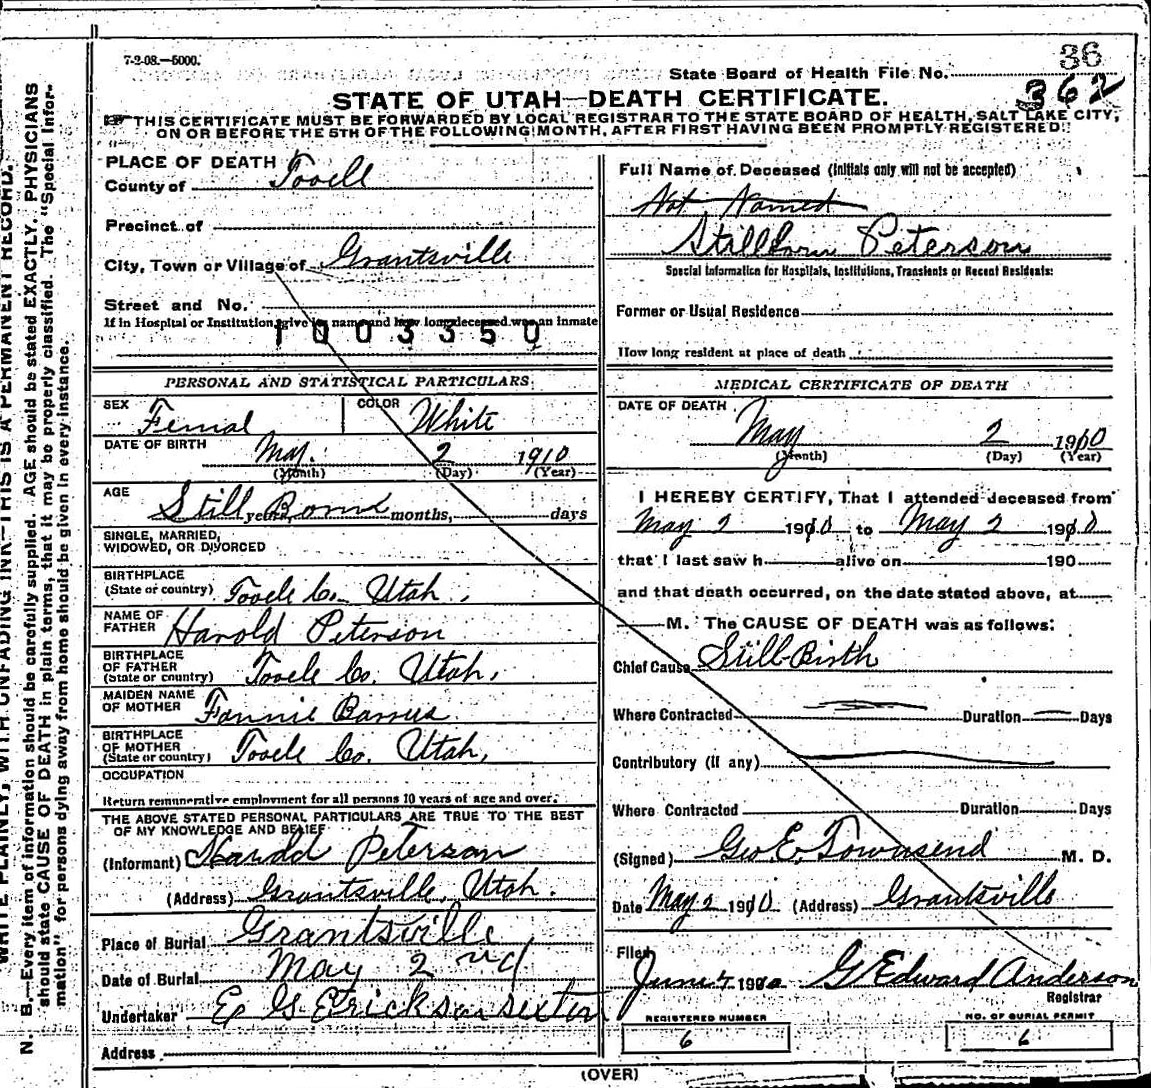 7-2-08.—5000.
36
State Board of Health File No.
362
STATE OF UTAH—DEATH CERTIFICATE.
THIS CERTIFICATE MUST BE FORWARDED BY LOCAL REGISTRAR TO THE STATE BOARD OF HEALTH, SALT LAKE CITY,
ON OR BEFORE THE 5TH OF THE FOLLOWING MONTH, AFTER FIRST HAVING BEEN PROMPTLY REGISTERED.
PLACE OF DEATH
County of Tooele
Precinct of
City, Town or Village of Grantsville
Street and No.
If in Hospital or Institution, give its name and how long deceased was an inmate
1003350
PERSONAL AND STATISTICAL PARTICULARS
SEX Femal COLOR White
DATE OF BIRTH May. 2 1910
(Month) (Day) (Year)
AGE Still years, Bornd months, days
SINGLE, MARRIED,
WIDOWED, OR DIVORCED
BIRTHPLACE
(State or country) Tooele Co. Utah.
NAME OF
FATHER Harold Peterson
BIRTHPLACE
OF FATHER
(State or country) Tooele Co. Utah.
MAIDEN NAME
OF MOTHER Fannie Barrus
BIRTHPLACE
OF MOTHER
(State or country) Tooele Co. Utah.
OCCUPATION
Return remunerative employment for all persons 10 years of age and over.
THE ABOVE STATED PERSONAL PARTICULARS ARE TRUE TO THE BEST
OF MY KNOWLEDGE AND BELIEF
(Informant) Harold Peterson
(Address) Grantsville, Utah.
Place of Burial Grantsville
Date of Burial May 2nd
Undertaker E G Erickson sexten
Address
Full Name of Deceased (Initials only will not be accepted)
Not Named
Stillborn Peterson
Special Information for Hospitals, Institutions, Transients or Recent Residents:
Former or Usual Residence
How long resident at place of death
MEDICAL CERTIFICATE OF DEATH
DATE OF DEATH
May 2 1910
(Month) (Day) (Year)
I HEREBY CERTIFY, That I attended deceased from
May 2 1910 to May 2 1910
that I last saw h alive on 190
and that death occurred, on the date stated above, at
M. The CAUSE OF DEATH was as follows:
Chief Cause Still-Birth
Where Contracted Duration Days
Contributory (if any)
Where Contracted Duration Days
(Signed) Geo. E. Townsend M. D.
Date May 2 1910 (Address) Grantsville
Filed
June 4 1910 G Edward Anderson
Registrar
REGISTERED NUMBER
6
NO. OF BURIAL PERMIT
6
(OVER)
WRITE PLAINLY, WITH UNFADING INK—THIS IS A PERMANENT RECORD.
N. B.—Every item of information should be carefully supplied. AGE should be stated EXACTLY. PHYSICIANS
should state CAUSE OF DEATH in plain terms, that it may be properly classified. The "Special Infor-
mation" for persons dying away from home should be given in every instance.